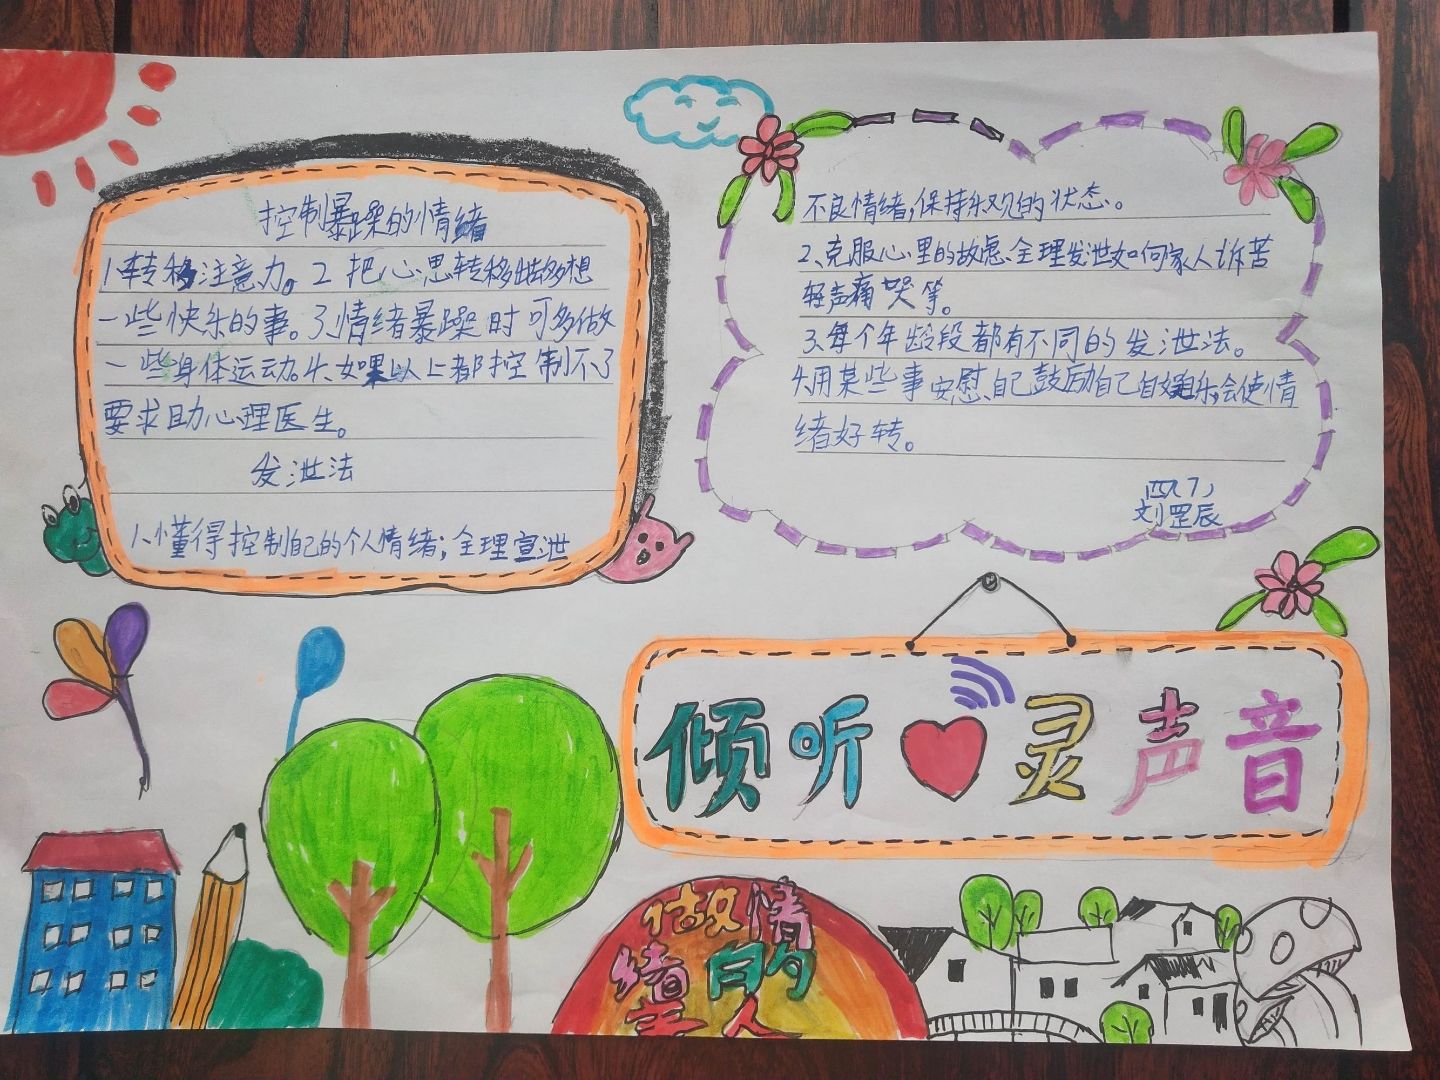 控制暴躁的情绪
1、转移注意力。2 把心思转移出去多想
一些快乐的事。3、情绪暴躁时可多做
一些身体运动。4、如果以上都控制不了
要求助心理医生。
发泄法
1、懂得控制自己的个人情绪；全理宣泄
不良情绪，保持乐观的状态。
2、克服心里的故虑、全理发泄如何家人诉苦
轻声痛哭等。
3、每个年龄段都有不同的发泄法。
4、用某些事安慰、自己鼓励自己自娱自乐，会使情
绪好转。
四（7）
刘罡辰
倾听 灵声音
做情
绪的
主人